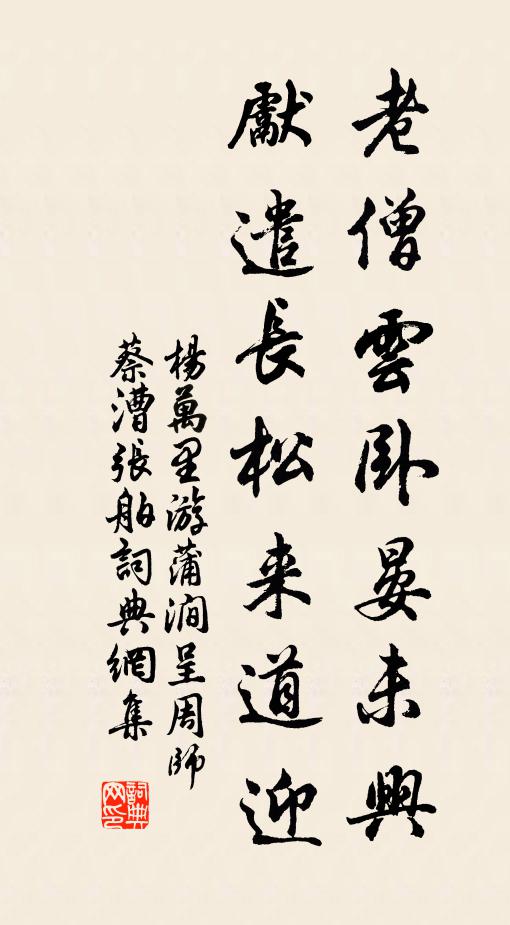 老僧雲卧晏未興
獻遣長松来道迎
楊萬里游蒲澗呈周師
蔡漕張舶詞典網集
詞典网印